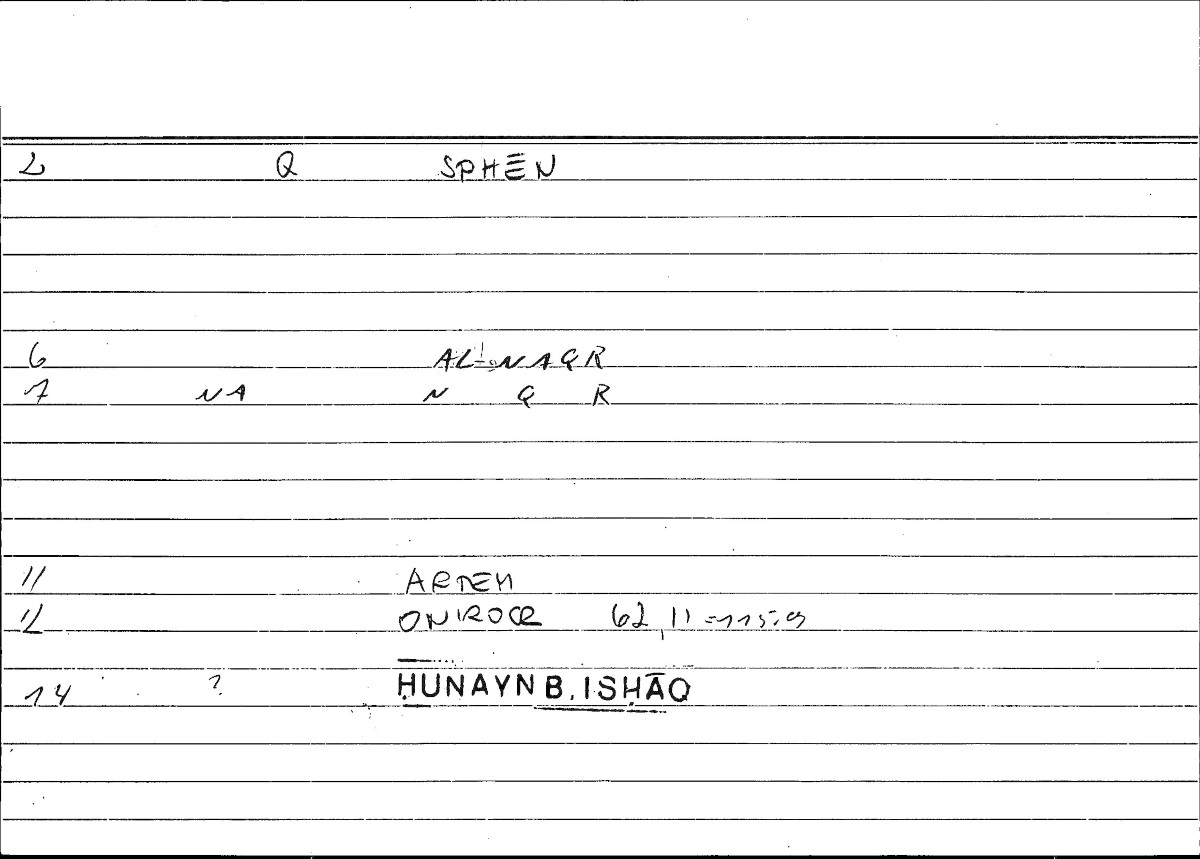 2 Q SPHĒN
6 AL-NAQR
7 NA N Q R
11 ARTEM
12 ONIROCR 62,11 = 115,9
14 ? ḤUNAYN B. ISḤĀQ